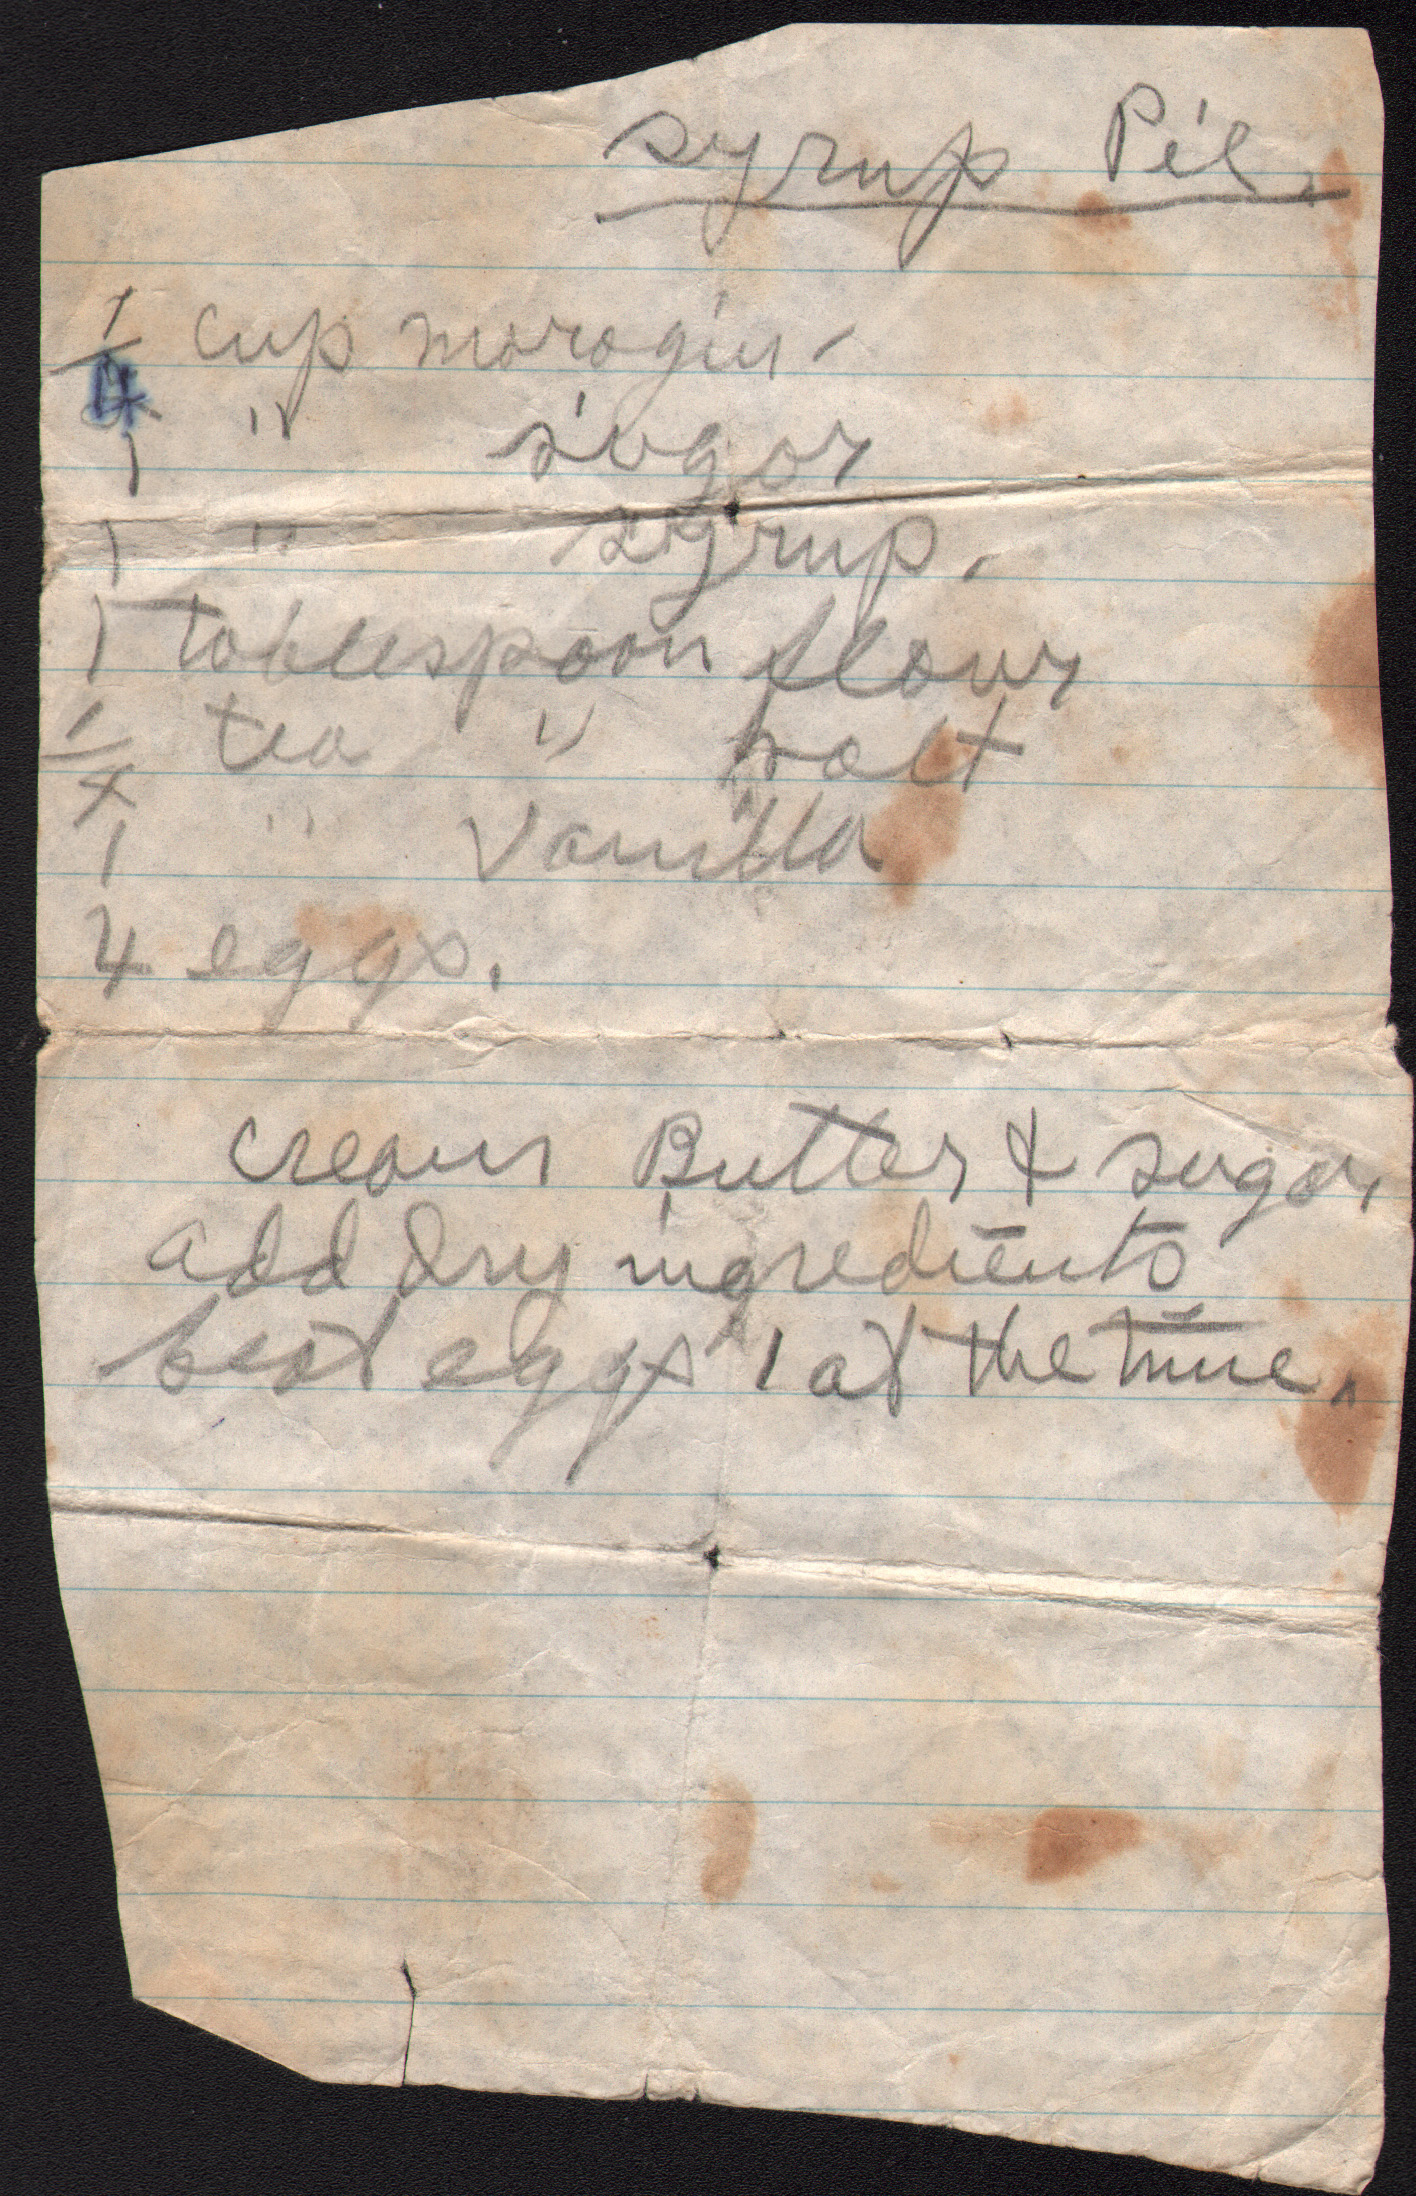 syrup Pie.
1/4 cup morogin.
1 " sugar
1 " syrup.
1 tablespoon flour
1/4 tea " salt
1 " Vanilla
4 eggs.
cream Butter & sugar,
add dry ingredients
beat eggs 1 at the time.